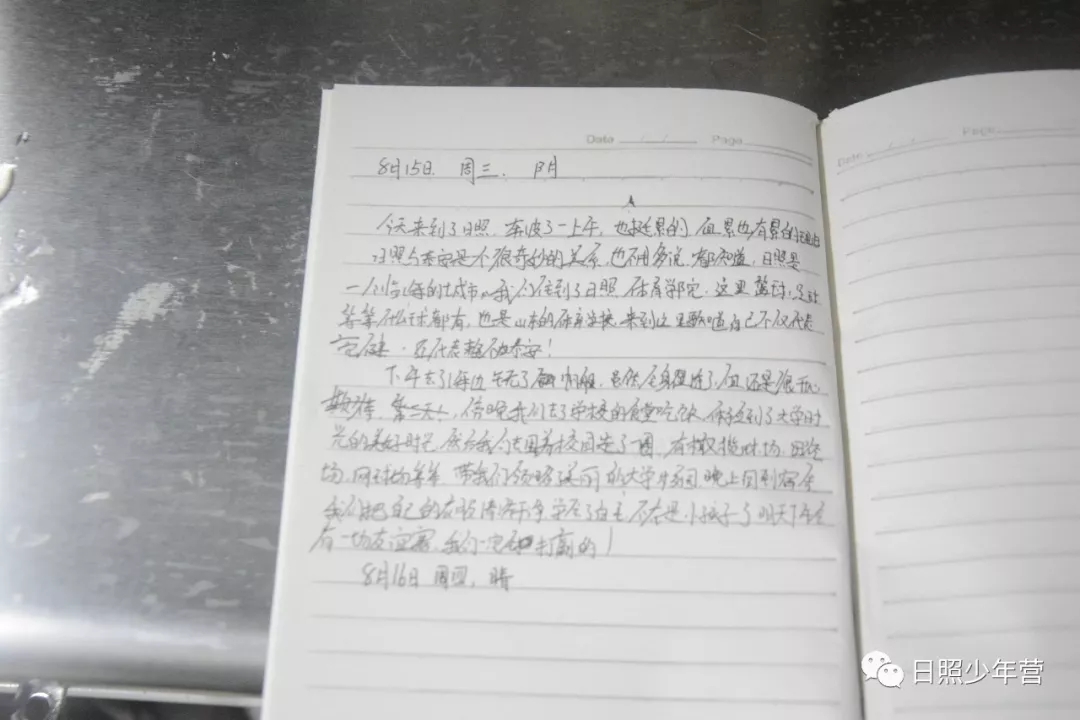 Date / / Page
Date / / Page
8月15日. 周三. 阴
今天来到了日照. 车坡了一上午, 也挺累的, 但累也有累的理由
日照与泰安是个很奇妙的关系, 也不用多说, 都知道, 日照是
一个临海的城市。我们住到了日照体育学院. 这里篮球, 足球
等等什么球都有, 也是山东的体育学校, 来到这里我知道自己不仅代表
, 还代表整个泰安!
下午去了海边 玩了, 虽然全身湿透了, 但还是很开心
, 傍晚我们去了学校的食堂吃饭, 体会到了大学时
光的美好时光. 然后我们去围着校园走了一圈, 有橄榄球场, 田径
场, 网球场等等 带我们领略了美丽的大学校园. 晚上回到宿舍
我们把自己的衣服清洗干净 学会了自主, 不在是小孩子了 明天下午会
有一场友谊赛, 我们一定会打赢的!
8月16日 周四, 晴
日照少年营